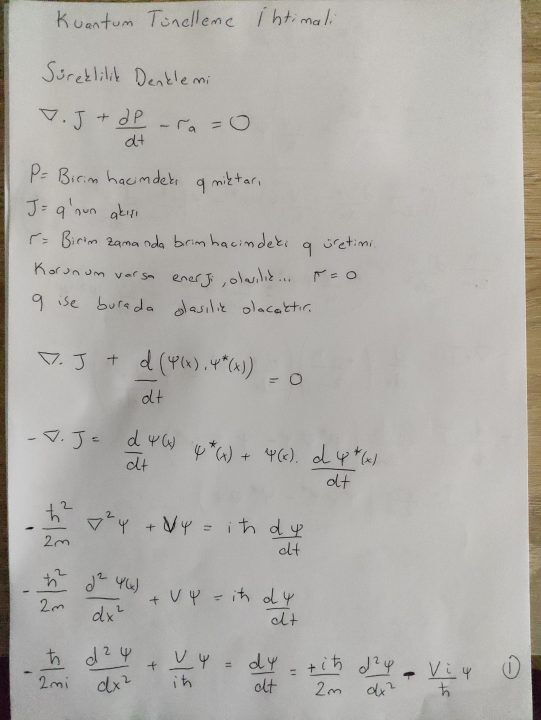 Kuantum Tünelleme İhtimali
Süreklilik Denklemi
∇. J + dP/dt - ra = 0
P= Birim hacimdeki q miktarı
J= q'nun akısı
r= Birim zamanda birim hacimdeki q üretimi
Korunum varsa enerji, olasılık... r=0
q ise burada olasılık olacaktır.
∇. J + d(Ψ(x).Ψ*(x))/dt = 0
-∇. J = d/dt Ψ(x) Ψ*(x) + Ψ(x). dΨ*(x)/dt
-ħ²/2m ∇²Ψ + VΨ = iħ dΨ/dt
-ħ²/2m d²Ψ(x)/dx² + VΨ = iħ dΨ/dt
-ħ/2mi d²Ψ/dx² + V/iħ Ψ = dΨ/dt = +iħ/2m d²Ψ/dx² - Vi/ħ Ψ ①